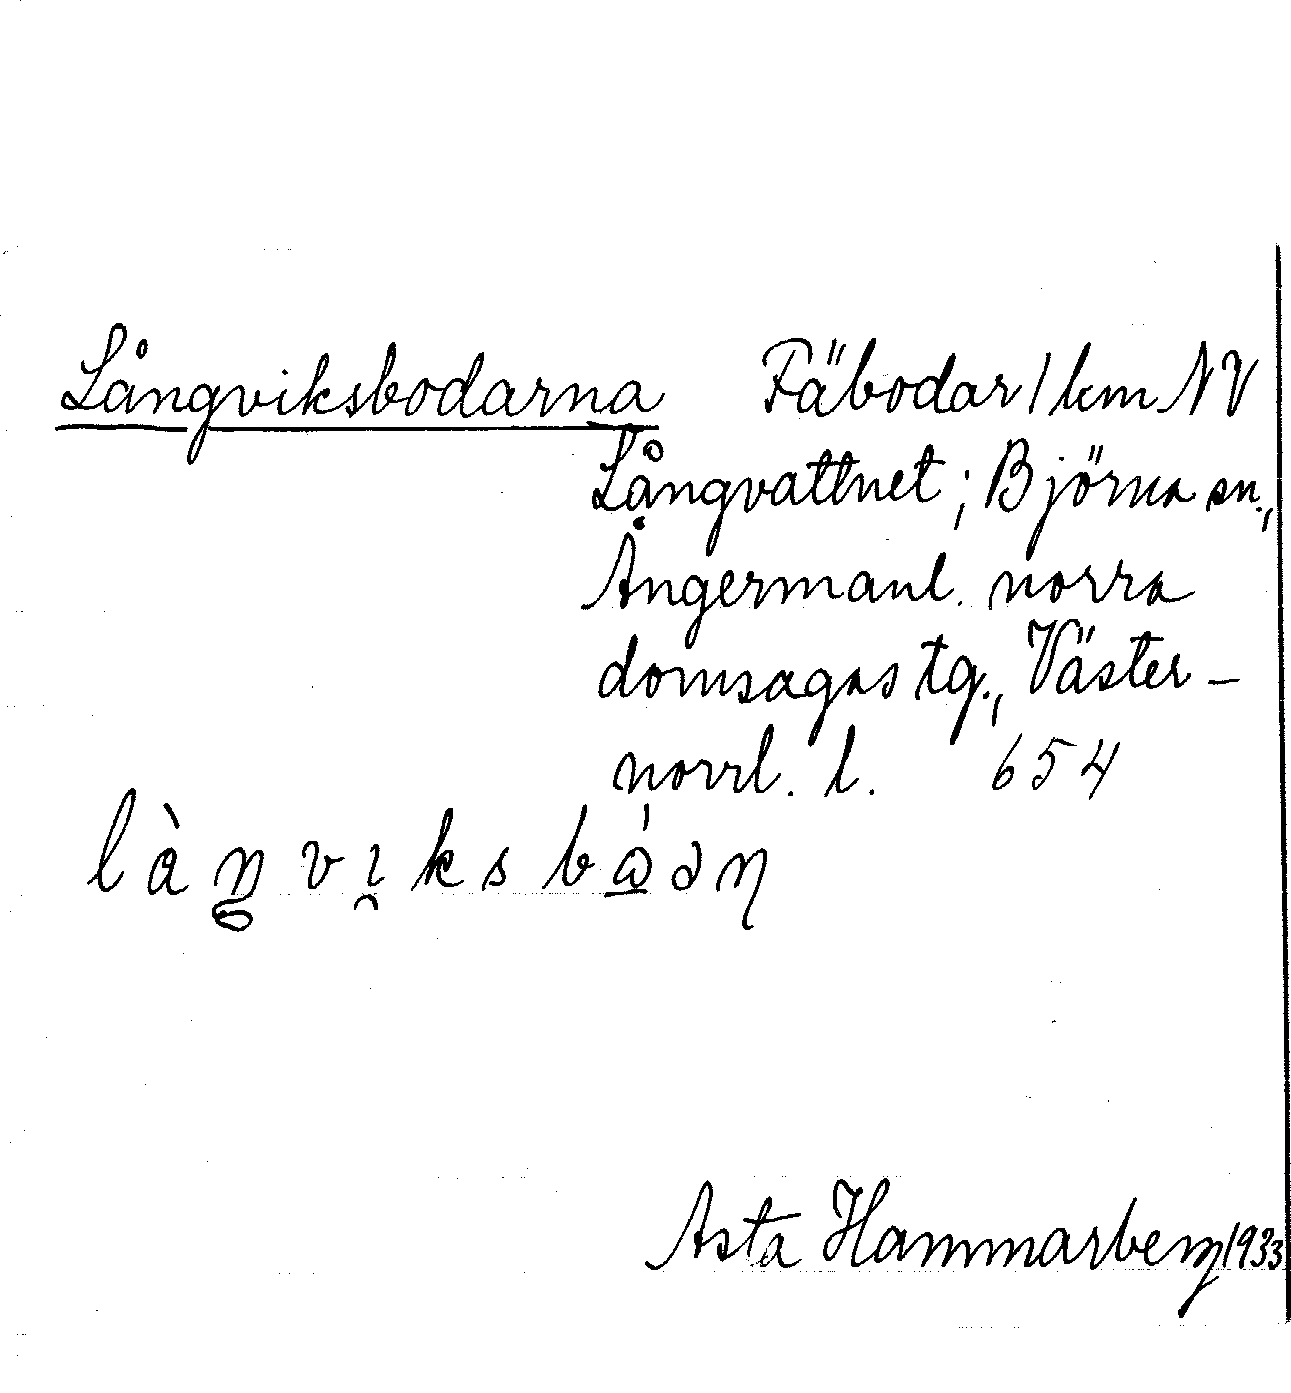 Långviksbodarna Fäbodar 1 km NV
Långvattnet; Björna sn.,
Ångermanl. norra
domsagas tg., Väster-
norrl. l. 654
là̀ŋvı̯ksbǻ̱əɳ
Asta Hammarberg 1933